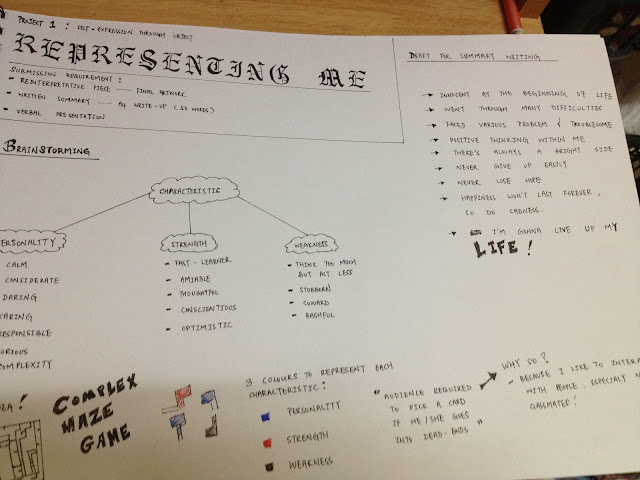 PROJECT 1 : SELF-EXPRESSION THROUGH OBJECT
REPRESENTING ME
SUBMISSION REQUIREMENT :
- REINTERPRETATIVE PIECE — FINAL ARTWORK
- WRITTEN SUMMARY — A4 WRITE-UP (150 WORDS)
- VERBAL PRESENTATION
BRAINSTORMING
CHARACTERISTIC
PERSONALITY
CALM
CONSIDERATE
DARING
CARING
RESPONSIBLE
COMPLEXITY
STRENGTH
- FAST - LEARNER
- AMIABLE
- THOUGHTFUL
- CONSCIENTIOUS
- OPTIMISTIC
WEAKNESS
- THINK TOO MUCH
BUT ACT LESS
- STUBBORN
- COWARD
- BASHFUL
DRAFT FOR SUMMARY WRITING
→ INNOCENT AT THE BEGINNING OF LIFE
→ WENT THROUGH MANY DIFFICULTIES
→ FACED VARIOUS PROBLEM & TROUBLESOME
→ POSITIVE THINKING WITHIN ME
→ THERE'S ALWAYS A BRIGHT SIDE
→ NEVER GIVE UP EASILY
→ NEVER LOSE HOPE
→ HAPPINESS WON'T LAST FOREVER,
SO DO SADNESS.
→ I'M GONNA LIVE UP MY
LIFE!
COMPLEX
MAZE
GAME
3 COLOURS TO REPRESENT EACH
CHARACTERISTIC :
PERSONALITY
STRENGTH
WEAKNESS
"AUDIENCE REQUIRED
TO PICK A CARD
IF HE/SHE GOES
INTO DEAD-ENDS"
WHY SO?
- BECAUSE I LIKE TO
WITH PEOPLE, ESPECIALY
CLASSMATES!